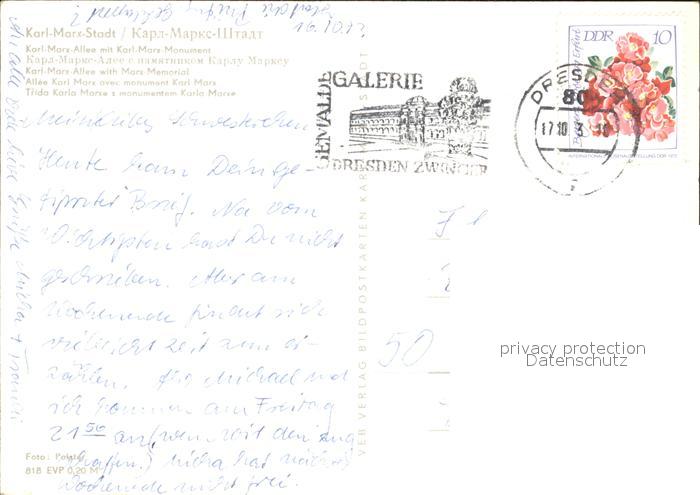 16.10.73
Karl-Marx-Stadt / Карл-Маркс-Штадт
Karl-Marx-Allee mit Karl-Marx-Monument
Карл-Маркс-Алее с памятником Карлу Марксу
Karl-Marx-Allee with Marx Memorial
Allée Karl Marx avec monument Karl Marx
Třída Karla Marxe s monumentem Karla Marxe
Heute kam Dein
Brief. Na vom
Wichtigsten hast Du nicht
geschrieben. Aber am
Wochenende findet sich
vielleicht Zeit zum er-
zählen. Michael und
ich kommen am Freitag
21⁵⁰ an (wenn wir den Zug
schaffen.) Micha hat nächstes
Wochenende nicht frei.
Foto:
818 EVP 0,20 M
liebe Grüße Micha +
VEB VERLAG BILDPOSTKARTEN KARL-MARX-STADT
GEMÄLDEGALERIE
DRESDEN ZWINGER
DRESDEN
80
17.10.73
DDR 10
INTERNATIONALE ROSENAUSSTELLUNG DDR 1972
50
privacy protection
Datenschutz